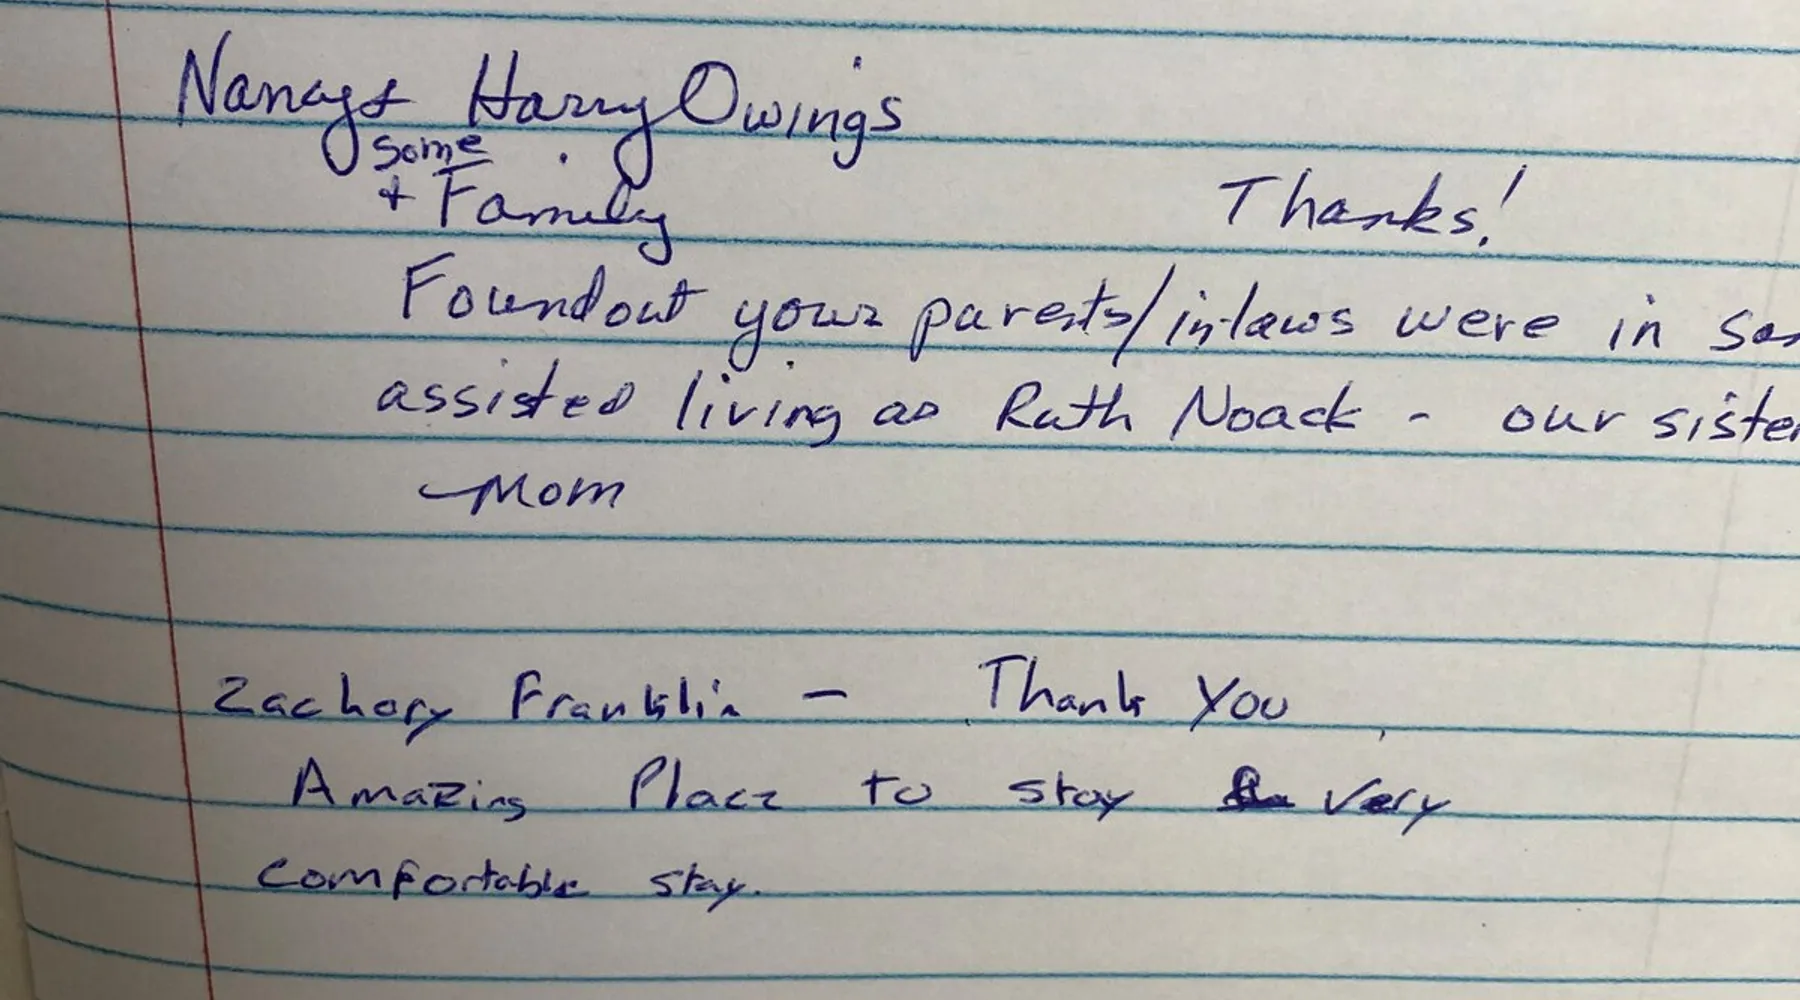 Nancy + Harry Owings
some
+ Family
Thanks!
Foundout your parents/in-laws were in
assisted living as Ruth Noack - our sister
-Mom
Zachory Franklin - Thank You
Amazing Place to stay Very
Comfortable stay.